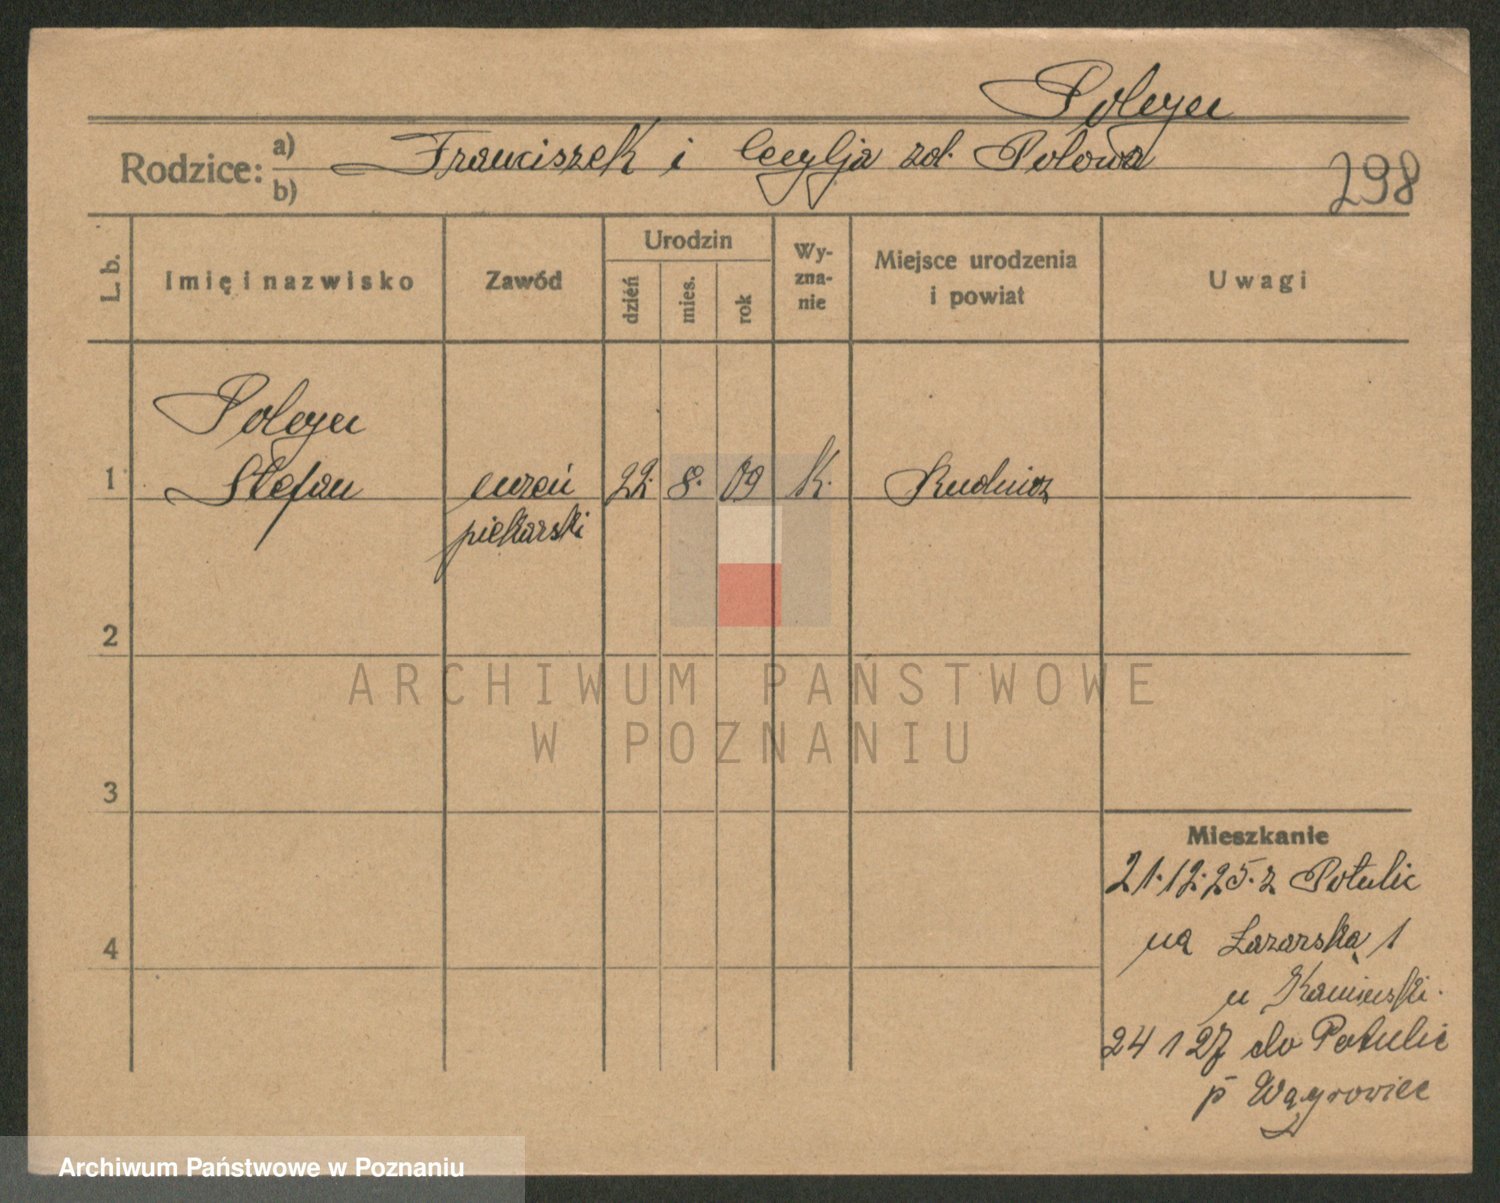 Poleyn
Rodzice: a) Franciszek i Cecylja zd. Polowa
b)
298
L. b. Imię i nazwisko Zawód Urodzin dzień mies. rok Wy-zna-nie Miejsce urodzenia i powiat Uwagi
Poleyn
1 Stefan uczeń 22. 8. 09 k. Rudnicz
piekarski
2
ARCHIWUM PAŃSTWOWE
W POZNANIU
3
Mieszkanie
21.12.25. z Potulic
4 na Łazarska 1
u Kamiński.
24 1 27 do Potulic
p Wągrowiec
Archiwum Państwowe w Poznaniu